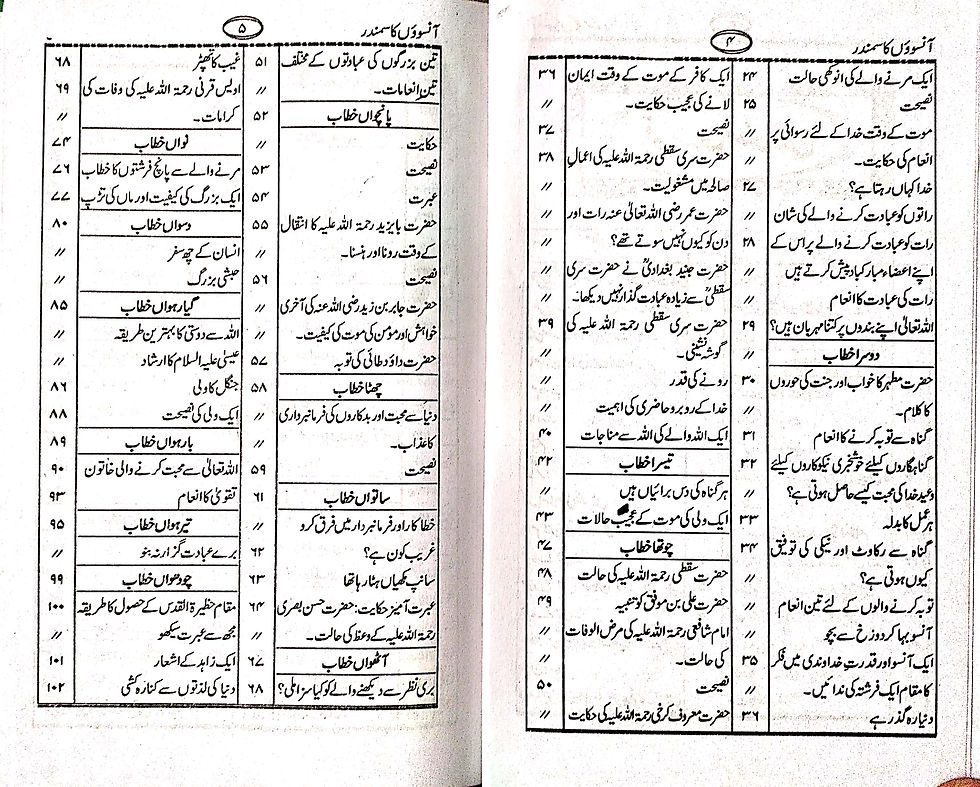 آنسوؤں کا سمندر
۴
ایک مرنے والے کی انوکھی حالت ۲۴
نصیحت ۲۵
موت کے وقت خدا کے لئے رسوائی پر 〃
انعام کی حکایت۔
خدا کہاں رہتا ہے؟ ۲۷
راتوں کو عبادت کرنے والے کی شان 〃
رات کو عبادت کرنے والے پر اس کے ۲۸
اپنے اعضاء مبارکباد پیش کرتے ہیں
رات کی عبادت کا انعام 〃
اللہ تعالیٰ اپنے بندوں پر کتنا مہربان ہیں؟ ۲۹
دوسرا خطاب 〃
حضرت مطہر کا خواب اور جنت کی حوروں ۳۰
کا کلام۔
گناہ سے توبہ کرنے کا انعام ۳۱
گناہگاروں کیلئے خوشخبری نیکوکاروں کیلئے ۳۲
وعید خدا کی محبت کیسے حاصل ہوتی ہے؟ 〃
ہر عمل کا بدلہ ۳۳
گناہ سے رکاوٹ اور نیکی کی توفیق ۳۴
کیوں ہوتی ہے؟
توبہ کرنے والوں کے لئے تین انعام 〃
آنسو بہا کر دوزخ سے بچو 〃
ایک آنسو اور قدرت خداوندی میں فکر ۳۵
کا مقام ایک فرشتہ کی ندائیں۔ 〃
دنیا رہ گذر ہے ۳۶
ایک کافر کے موت کے وقت ایمان ۳۶
لانے کی عجیب حکایت۔ 〃
نصیحت ۳۷
حضرت سری سقطی رحمۃ اللہ علیہ کی اعمال ۳۸
صالحہ میں مشغولیت۔ 〃
حضرت عمر رضی اللہ تعالیٰ عنہ رات اور 〃
دن کو کیوں نہیں سوتے تھے؟ 〃
حضرت جنید بغدادیؒ نے حضرت سری 〃
سقطیؒ سے زیادہ عبادت گذار نہیں دیکھا۔ 〃
حضرت سری سقطی رحمۃ اللہ علیہ کی ۳۹
گوشہ نشینی۔ 〃
رونے کی قدر 〃
خدا کے روبرو حاضری کی اہمیت 〃
ایک اللہ والے کی اللہ سے مناجات ۴۰
تیسرا خطاب ۴۲
ہر گناہ کی دس برائیاں ہیں 〃
ایک ولی کی موت کے عجیب حالات ۴۳
چوتھا خطاب ۴۷
حضرت سقطی رحمۃ اللہ علیہ کی حالت ۴۸
حضرت علی بن موفق کو تنبیہ ۴۹
امام شافعی رحمۃ اللہ علیہ کی مرض الوفات 〃
کی حالت۔ 〃
نصیحت ۵۰
حضرت معروف کرخی رحمۃ اللہ علیہ کی حکایت 〃
آنسوؤں کا سمندر
۵
تین بزرگوں کی عبادتوں کے مختلف ۵۱
تین انعامات۔ 〃
پانچواں خطاب ۵۲
حکایت 〃
نصیحت ۵۳
عبرت ۵۴
حضرت بایزید رحمۃ اللہ علیہ کا انتقال ۵۵
کے وقت رونا اور ہنسنا۔ 〃
نصیحت ۵۶
حضرت جابر بن زید رضی اللہ عنہ کی آخری 〃
خواہش اور مؤمن کی موت کی کیفیت۔ 〃
حضرت داؤد طائی کی توبہ ۵۷
چھٹا خطاب ۵۸
دنیا سے محبت اور بدکاروں کی فرمانبرداری 〃
کا عذاب۔ 〃
نصیحت ۵۹
ساتواں خطاب ۶۱
خطا کار اور فرمانبردار میں فرق کرو 〃
غریب کون ہے؟ ۶۲
سانپ مکھیاں ہٹا رہا تھا ۶۳
عبرت آمیز حکایت: حضرت حسن بصری ۶۴
رحمۃ اللہ علیہ کے وعظ کی حالت۔ 〃
آٹھواں خطاب ۶۷
بری نظر سے دیکھنے والے کو کیا سزا ملی؟ ۶۸
غیب کا تھپڑ ۶۸
اویس قرنی رحمۃ اللہ علیہ کی وفات کی ۶۹
کرامات۔ 〃
نواں خطاب ۷۴
مرنے والے سے پانچ فرشتوں کا خطاب ۷۶
ایک بزرگ کی کیفیت اور ماں کی تڑپ ۷۷
دسواں خطاب ۸۰
انسان کے چھ سفر 〃
حبشی بزرگ 〃
گیارہواں خطاب ۸۵
اللہ سے دوستی کا بہترین طریقہ 〃
عیسیٰ علیہ السلام کا ارشاد 〃
جنگل کا ولی ۸۶
ایک ولی کی نصیحت ۸۸
بارہواں خطاب ۸۹
اللہ تعالیٰ سے محبت کرنے والی خاتون ۹۰
تقویٰ کا انعام ۹۳
تیرہواں خطاب ۹۵
برے عبادت گزار نہ بنو 〃
چودھواں خطاب ۹۹
مقام حظیرۃ القدس کے حصول کا طریقہ ۱۰۰
مجھ سے عبرت سیکھو 〃
ایک زاہد کے اشعار ۱۰۱
دنیا کی لذتوں سے کنارہ کشی ۱۰۲